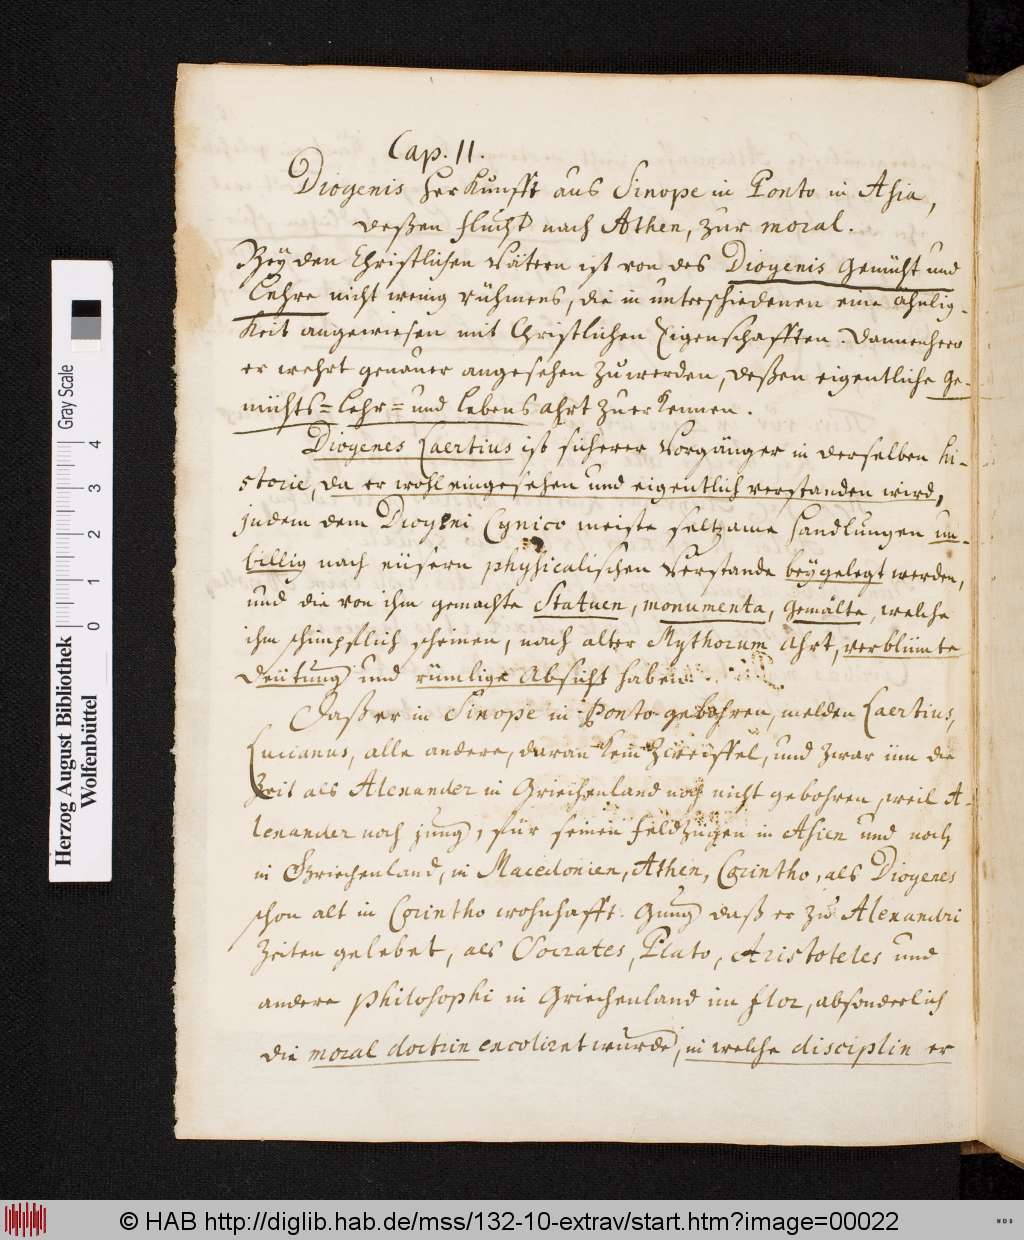 Cap. II.
Diogenis Herkunfft aus Sinope in Ponto in Asia,
deßen flucht nach Athen, zur moral.
Bey den Christlichen Vätern ist von des Diogenis Gemüht und
Lehre nicht wenig rühmens, die in unterschiedenen eine ähnlig-
keit angewiesen mit Christlichen Eigenschafften. Dannenhero
er wehrt genauer angesehen zu werden, deßen eigentliche Ge-
mühts= Lehr= und Lebens ahrt zu erkennen.
Diogenes Laertius ist sicherer Vorgänger in derselben Hi-
storie, da er wohl eingesehen und eigentlich verstanden wird,
indem dem Diogeni Cynico meiste seltzame Handlungen un-
billig nach eüsern physicalischen Verstande beygelegt werden,
und die von ihm gemachte Statuen, monumenta, Gemälte, welche
ihm schimpflich scheinen, nach alter Mythorum Ahrt, verblümte
Deütung und rümlige Absicht haben.
Daß er in Sinope in Ponto gebohren, melden Laertius,
Lucianus, alle andere, daran kein Zweiffel, und zwar üm die
Zeit als Alexander in Griechenland noch nicht gebohren, weil A-
lexander noch jung, für seinen feldzügen in Asien und noch
in Griechenland, in Macedonien, Athen, Corintho, als Diogenes
schon alt in Corintho wohnhafft. Gnug daß er zu Alexandri
Zeiten gelebet, als Socrates, Plato, Aristoteles und
andere Philosophi in Griechenland im flor, absonderlich
die moral doctrin excolirt wurde, in welche disciplin er
Herzog August Bibliothek
Wolfenbüttel
Gray Scale
0 1 2 3 4
© HAB http://diglib.hab.de/mss/132-10-extrav/start.htm?image=00022